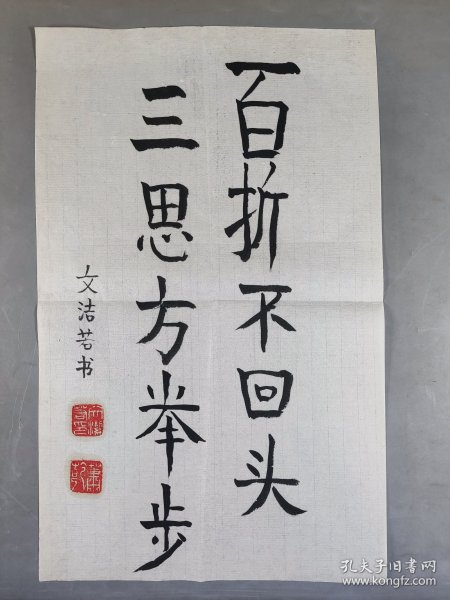 百折不回头
三思方举步
文洁若书
文洁若印
萧乾
孔夫子旧书网
www.kongfz.com